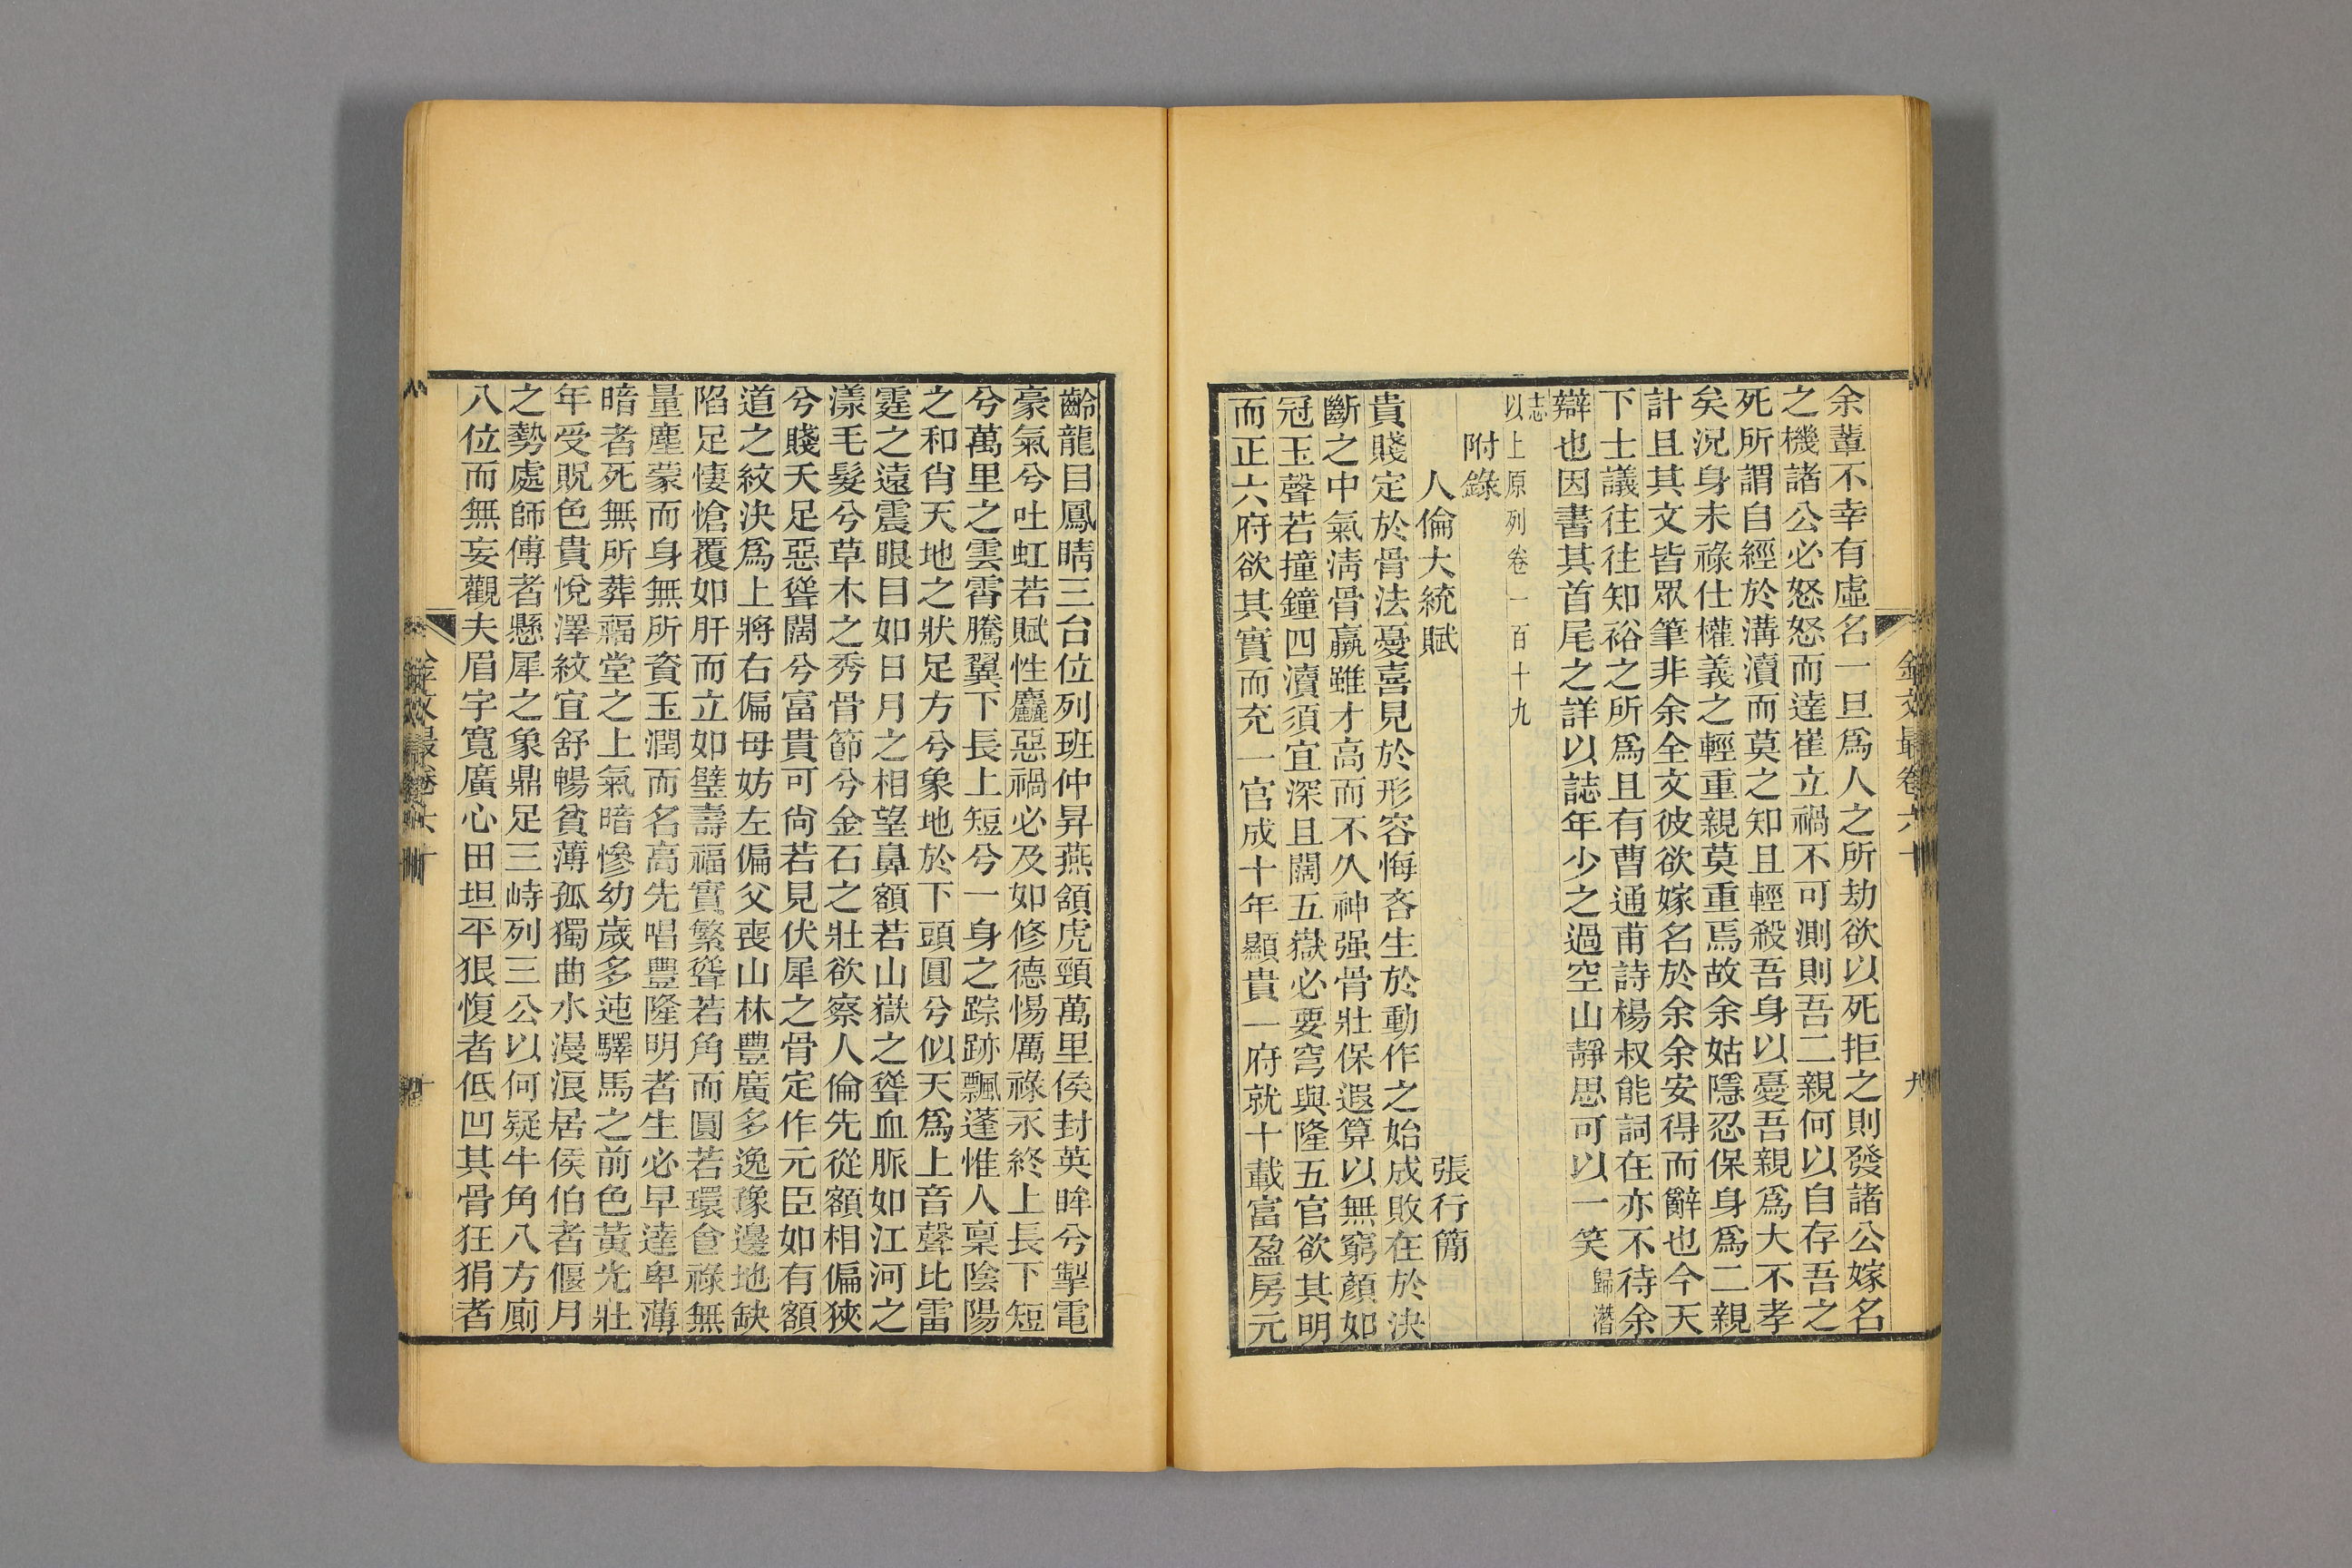 金文最卷六十
九
余輩不幸有虛名一旦爲人之所劫欲以死拒之則發諸公嫁名
之機諸公必怒怒而達崔立禍不可測則吾二親何以自存吾之
死所謂自經於溝瀆而莫之知且輕殺吾身以憂吾親爲大不孝
矣況身未祿仕權義之輕重親莫重焉故余姑隱忍保身爲二親
計且其文皆眾筆非余全文彼欲嫁名於余余安得而辭也今天
下士議往往知裕之所爲且有曹通甫詩楊叔能詞在亦不待余
辯也因書其首尾之詳以誌年少之過空山靜思可以一笑歸潛
志
以上原列卷一百十九
附錄
人倫大統賦 張行簡
貴賤定於骨法憂喜見於形容悔吝生於動作之始成敗在於決
斷之中氣淸骨羸雖才高而不久神强骨壯保遐算以無窮顏如
冠玉聲若撞鐘四瀆須宜深且闊五嶽必要穹與隆五官欲其明
而正六府欲其實而充一官成十年顯貴一府就十載富盈房元
齡龍目鳳睛三台位列班仲昇燕頷虎頸萬里侯封英眸兮掣電
豪氣兮吐虹若賦性麤惡禍必及如修德惕厲祿永終上長下短
兮萬里之雲霄騰翼下長上短兮一身之踪跡飄蓬惟人稟陰陽
之和肖天地之狀足方兮象地於下頭圓兮似天爲上音聲比雷
霆之遠震眼目如日月之相望鼻額若山嶽之聳血脈如江河之
漾毛髮兮草木之秀骨節兮金石之壯欲察人倫先從額相偏狹
兮賤夭足惡聳闊兮富貴可尙若見伏犀之骨定作元臣如有額
道之紋決爲上將右偏母妨左偏父喪山林豐廣多逸豫邊地缺
陷足悽愴覆如肝而立如壁壽福實繁聳若角而圓若環食祿無
量塵蒙而身無所資玉潤而名高先唱豐隆明者生必早達卑薄
暗者死無所葬福堂之上氣暗慘幼歲多迍驛馬之前色黃光壯
年受貺色貴悅澤紋宜舒暢貧薄孤獨曲水漫浪居侯伯者偃月
之勢處師傅者懸犀之象鼎足三峙列三公以何疑牛角八方廁
八位而無妄觀夫眉宇寬廣心田坦平狠愎者低凹其骨狂狷者
金文最卷六十